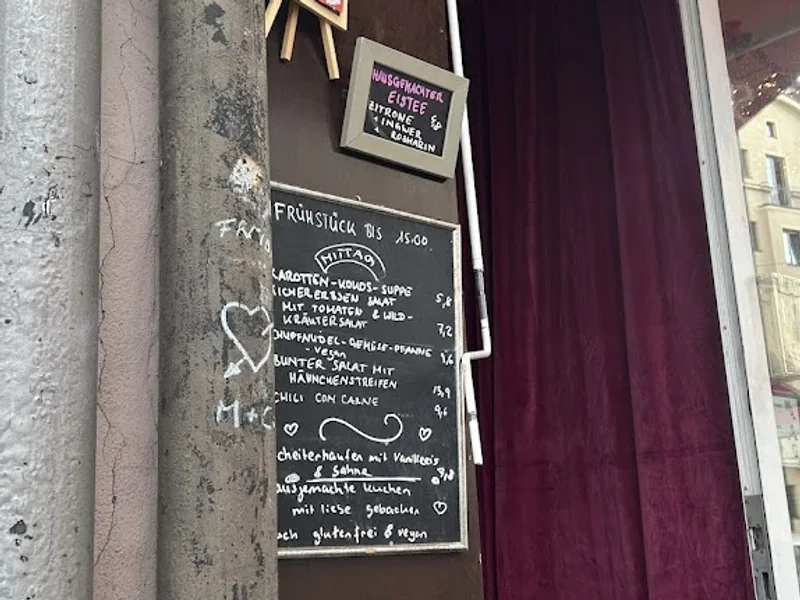 HAUSGEMACHTER
EISTEE
ZITRONE
+ INGWER
+ ROSMARIN
FRÜHSTÜCK BIS 15:00
MITTAG
KAROTTEN-KOKOS-SUPPE 5,8
KICHERERBSEN SALAT
MIT TOMATEN & WILD-
KRÄUTERSALAT 7,2
CHUPFNUDEL-GEMÜSE-PFANNE
- vegan 9,6
BUNTER SALAT MIT
HÄHNCHENSTREIFEN 13,9
CHILI CON CARNE 9,6
cheiterhaufen mit Vanilleeis
& Sahne 7,8
ausgemachte Kuchen
mit liebe gebacken
och glutenfrei & vegan
M + C